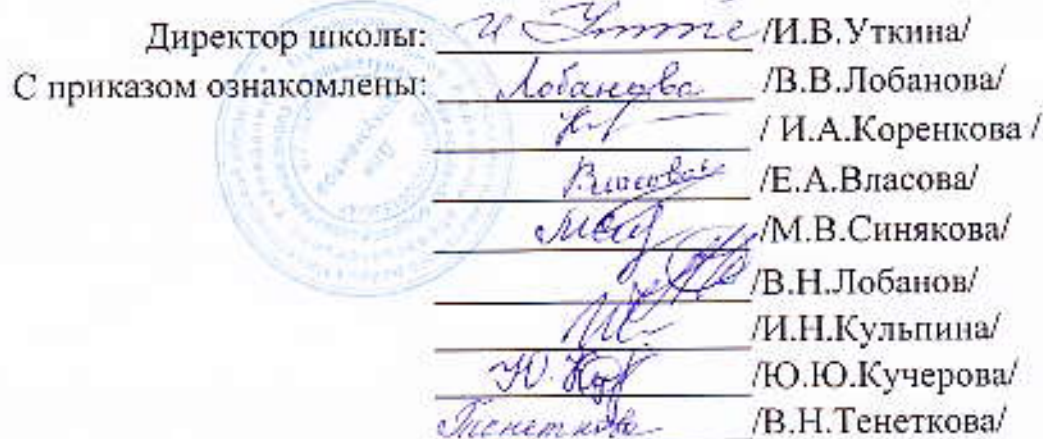 Директор школы: /И.В.Уткина/
С приказом ознакомлены: Лобанова /В.В.Лобанова/
/ И.А.Коренкова /
Власова /Е.А.Власова/
/М.В.Синякова/
/В.Н.Лобанов/
/И.Н.Кульпина/
/Ю.Ю.Кучерова/
Тенеткова /В.Н.Тенеткова/